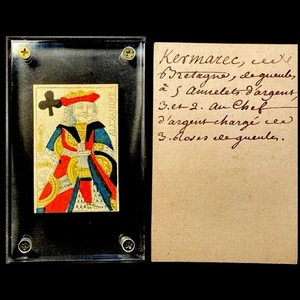 ALEXANDRE
Kermarec, en
Bretagne, de gueules
à 5 Annelets d'argent,
3. et 2. Au Chef
d'argent chargé de
3. Roses de gueules.